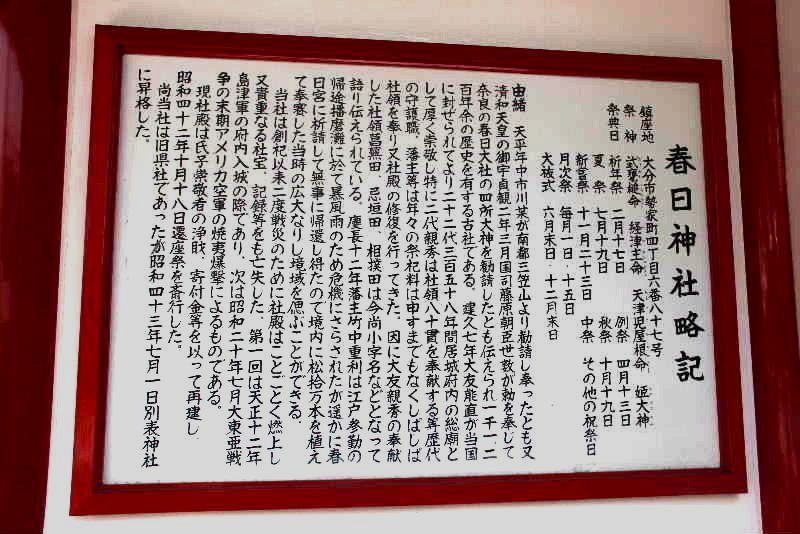 春日神社略記
鎮座地　大分市勢家町四丁目六番八十七号
祭神　武甕槌命　経津主命　天津児屋根命　姫大神
祭典日　祈年祭　二月十七日　例祭　四月十三日
夏祭　七月十九日　秋祭　十月十九日
新嘗祭　十一月二十三日　中祭　その他の祝祭日
月次祭　毎月一日・十五日
大祓式　六月末日・十二月末日
由緒　天平年中市川某が南都三笠山より勧請し奉ったとも又
清和天皇の御宇貞観二年三月国司藤原朝臣世数が勅を奉じて
奈良の春日大社の四所大神を勧請したとも伝えられ一千一、二
百年余の歴史を有する古社である。建久七年大友能直が当国
に封ぜられてより二十二代三百五十八年間居城府内の総廟と
して厚く崇敬し特に二代親秀は社領八十貫を奉献する等歴代
の守護職、藩主等は年々の祭祀料は申すまでもなくしばしば
社領を奉り又社殿の修復を行ってきた。因に大友親秀の奉献
した社領菖蒲田、忌垣田、相撲田は今尚小字名などとなって
語り伝えられている。慶長十二年藩主竹中重利は江戸参勤の
帰途播磨灘に於て暴風雨のため危機にさらされたが遥かに春
日宮に祈請して無事に帰還し得たので境内に松拾万本を植え
て奉賽した当時の広大なりし境域を偲ぶことができる。
当社は創祀以来二度戦災のために社殿はことごとく燃上し
又貴重なる社宝、記録等をも亡失した。第一回は天正十二年
島津軍の府内入城の際であり、次は昭和二十年七月大東亜戦
争の末期アメリカ空軍の焼夷爆撃によるものである。
現社殿は氏子崇敬者の浄財、寄付金等を以って再建し
昭和四十二年十月十八日遷座祭を斎行した。
尚当社は旧県社であったが昭和四十三年七月一日別表神社
に昇格した。